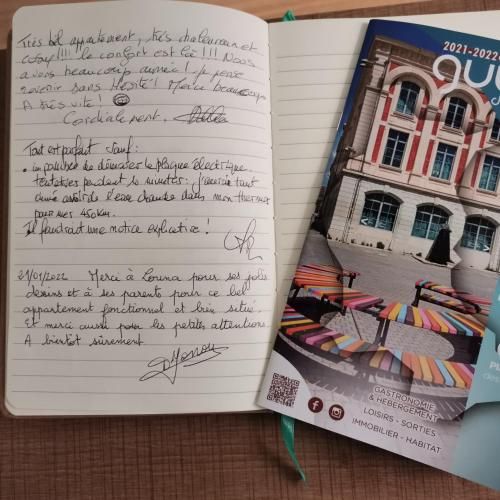 Très bel appartement, très chaleureux et
cosy!!!! le confort est là!!!! Nous
avons beaucoup aimé! Je pense
revenir sans hésité! Merci beaucoup
A très vite!
Cordialement.
Tout est parfait sauf:
• impossible de démarrer la plaque électrique
tentatives pendant 10 minutes: j'aurais tant
aimé avoir de l'eau chaude dans mon thermos
pour mes 450km.
Il faudrait une notice explicative!
21/01/2022 Merci à Louna pour ses jolis
dessins et à ses parents pour ce bel
appartement fonctionnel et bien situé.
Et merci aussi pour les petites attentions.
A bientôt sûrement.
2021-2022
GASTRONOMIE
& HÉBERGEMENT
LOISIRS - SORTIES
IMMOBILIER - HABITAT